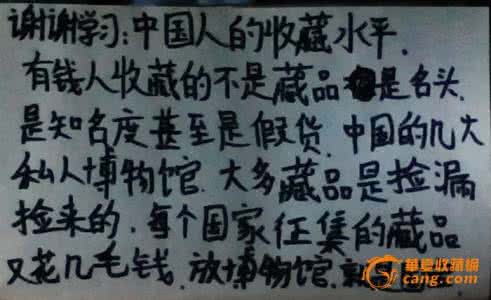 谢谢学习:中国人的收藏水平.
有钱人收藏的不是藏品是名头.
是知名度甚至是假货.中国的几大
私人博物馆.大多藏品是捡漏
捡来的.每个国家征集的藏品
又花几毛钱.放博物馆.就是
华夏收藏网
cang.com